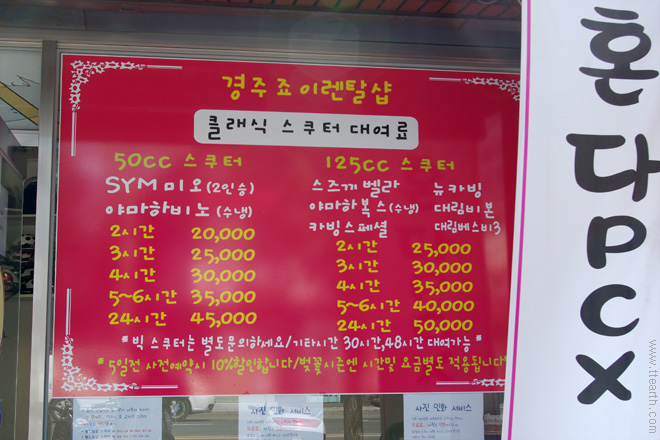 경주죠이렌탈샵
클래식 스쿠터 대여료
50cc 스쿠터
SYM 미오 (2인승)
야마하비노 (수냉)
2시간 20,000
3시간 25,000
4시간 30,000
5~6시간 35,000
24시간 45,000
125cc 스쿠터
스즈끼 벨라 뉴카빙
야마하복스 (수냉) 대림비본
카빙스페셜 대림베스비3
2시간 25,000
3시간 30,000
4시간 35,000
5~6시간 40,000
24시간 50,000
빅 스쿠터는 별도문의하세요/기타시간 30시간,48시간 대여가능
5일전 사전예약시 10%할인합니다/벚꽃시즌엔 시간및 요금별도 적용됩니다
혼다PCX
사진 인화 서비스
사진 인화 서비스
www.ttearth.com